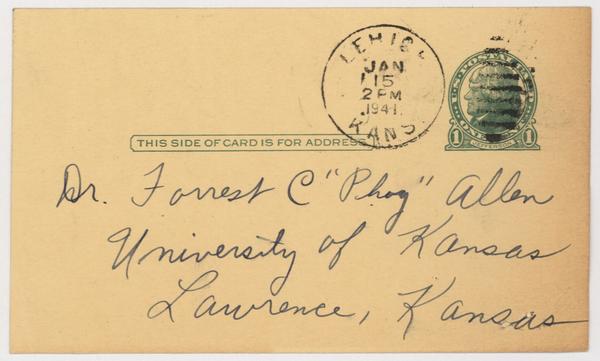 LEHIGH
JAN
15
2 PM
1941
KANS.
U.S. POSTAGE
1 JEFFERSON 1
THIS SIDE OF CARD IS FOR ADDRESS
Dr. Forrest C "Phog" Allen
University of Kansas
Lawrence, Kansas